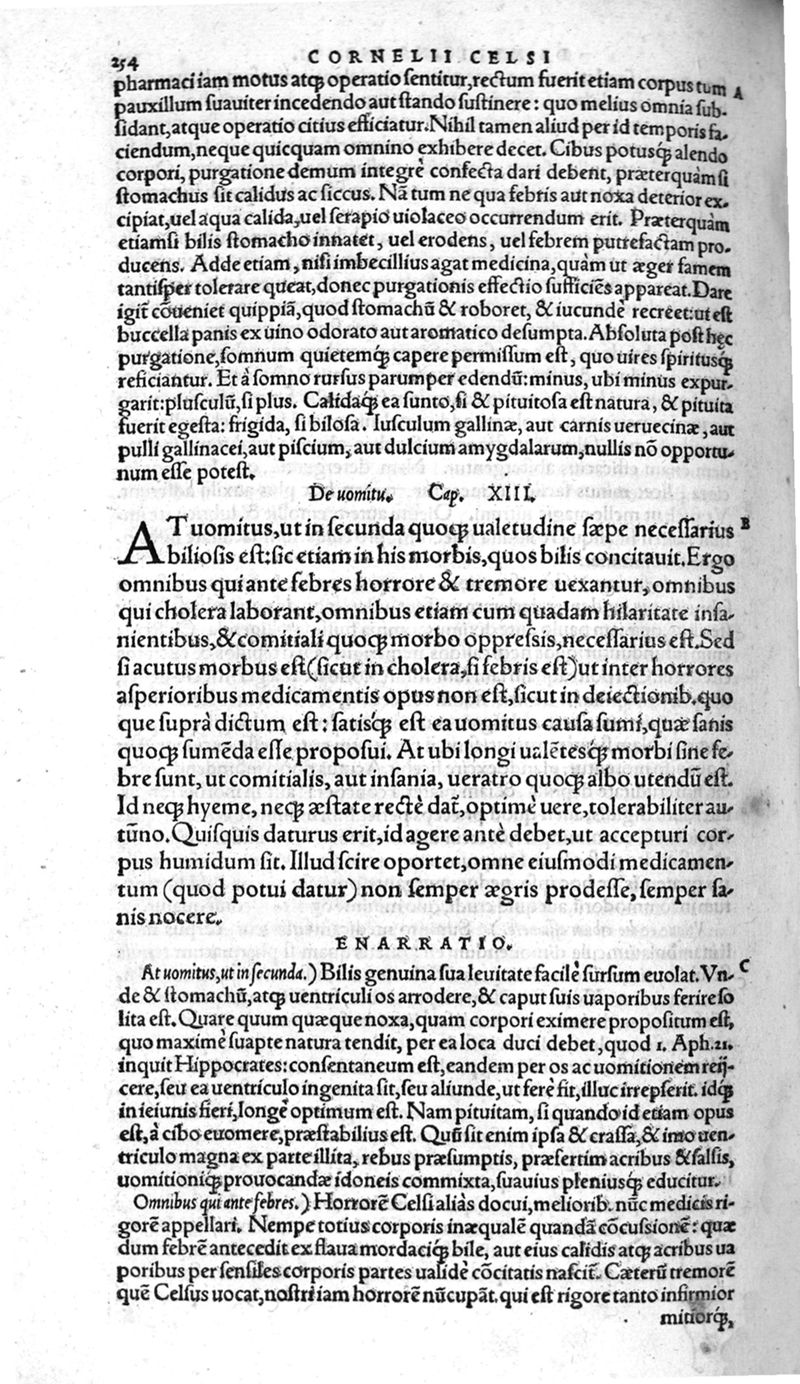 254 CORNELII CELSI
pharmaci iam motus atq; operatio ſentitur,rectum fuerit etiam corpus tum A
pauxillum ſuauiter incedendo aut ſtando ſuſtinere: quo melius omnia ſub-
ſidant,atque operatio citius efficiatur.Nihil tamen aliud per id temporis fa-
ciendum,neque quicquam omnino exhibere decet. Cibus potusq́; alendo
corpori, purgatione demum integrè confecta dari debent, præterquàm ſi
ſtomachus ſit calidus ac ſiccus. Nã tum ne qua febris aut noxa deterior ex-
cipiat,uel aqua calida,uel ſerapio uiolaceo occurrendum erit. Præterquàm
etiamſi bilis ſtomacho innatet, uel erodens, uel febrem putrefactam pro-
ducens. Adde etiam, niſi imbecillius agat medicina,quàm ut æger famem
tantiſper tolerare queat,donec purgationis effectio ſufficiẽs appareat.Dare
igit᷑ cõueniet quippiã,quod ſtomachũ & roboret, & iucundè recreet:ut eſt
buccella panis ex uino odorato aut aromatico deſumpta.Abſoluta poſt hęc
purgatione,ſomnum quietemq́; capere permiſſum eſt, quo uires ſpiritusq́;
reficiantur. Et à ſomno rurſus parumper edendũ:minus, ubi minus expur-
garit:pluſculũ,ſi plus. Calidaq́; ea ſunto,ſi & pituitoſa eſt natura, & pituita
fuerit egeſta: frigida, ſi biloſa. Iuſculum gallinæ, aut carnis ueruecinæ, aut
pulli gallinacei,aut piſcium, aut dulcium amygdalarum,nullis nõ opportu-
num eſſe poteſt.
De uomitu. Cap. XIII.
AT uomitus,ut in ſecunda quoq; ualetudine ſæpe neceſſarius B
bilioſis eſt:ſic etiam in his morbis,quos bilis concitauit.Ergo
omnibus qui ante febres horrore & tremore uexantur,omnibus
qui cholera laborant,omnibus etiam cum quadam hilaritate inſa-
nientibus,& comitiali quoq; morbo oppreſsis,neceſſarius eſt.Sed
ſi acutus morbus eſt(ſicut in cholera,ſi febris eſt)ut inter horrores
aſperioribus medicamentis opus non eſt,ſicut in deiectionib.quo
que ſuprà dictum eſt: ſatisq́; eſt ea uomitus cauſa ſumi,quæ ſanis
quoq; ſumẽda eſſe propoſui. At ubi longi ualẽtesq́; morbi ſine fe-
bre ſunt, ut comitialis, aut inſania, ueratro quoq; albo utendũ eſt.
Id neq; hyeme, neq; æſtate rectè dat᷑,optimè uere,tolerabiliter au-
tũno.Quiſquis daturus erit,id agere antè debet,ut accepturi cor-
pus humidum ſit. Illud ſcire oportet,omne eiuſmodi medicamen-
tum (quod potui datur) non ſemper ægris prodeſſe, ſemper ſa-
nis nocere.
ENARRATIO.
At uomitus,ut in ſecunda.) Bilis genuina ſua leuitate facilè ſurſum euolat. Vn- C
de & ſtomachũ,atq; uentriculi os arrodere,& caput ſuis uaporibus ferire ſo
lita eſt. Quare quum quæque noxa,quam corpori eximere propoſitum eſt,
quo maximè ſuapte natura tendit, per ea loca duci debet,quod 1. Aph.21.
inquit Hippocrates: conſentaneum eſt,eandem per os ac uomitionem reij-
cere,ſeu ea uentriculo ingenita ſit,ſeu aliunde,ut ferè fit,illuc irrepſerit. idq́;
in ieiunis fieri,longè optimum eſt. Nam pituitam, ſi quando id etiam opus
eſt,à cibo euomere,præſtabilius eſt. Quũ ſit enim ipſa & craſſa,& imo uen-
triculo magna ex parte illita, rebus præſumptis, præſertim acribus & ſalſis,
uomitioniq́; prouocandæ idoneis commixta,ſuauius pleniusq́; educitur.
Omnibus qui ante febres.) Horrorẽ Celſi aliàs docui,meliorib. nũc medicis ri-
gorẽ appellari. Nempe totius corporis inæqualẽ quandã cõcuſsionẽ: quæ
dum febrẽ antecedit ex flaua mordaciq́; bile, aut eius calidis atq; acribus ua
poribus per ſenſiles corporis partes ualidè cõcitatis naſcit᷑. Cæterũ tremorẽ
quẽ Celſus uocat,noſtri iam horrorẽ nũcupãt. qui eſt rigore tanto infirmior
mitiorq́;,